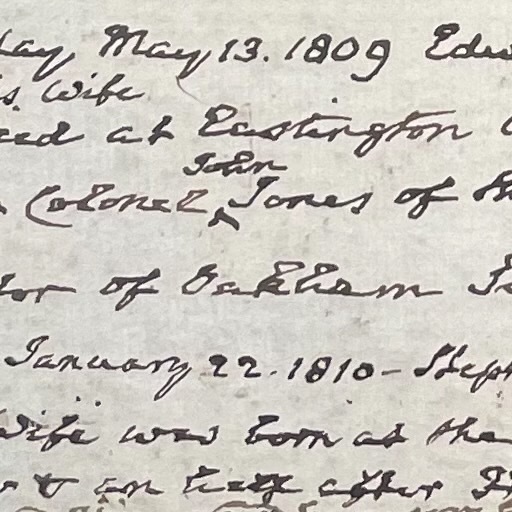 day, May 13. 1809 Edw
is Wife
ied at Eastington
John
Colonel ‸ Jones of th
tor of Oakham
January 22. 1810 - Steph
Wife was born at the
r & an half after